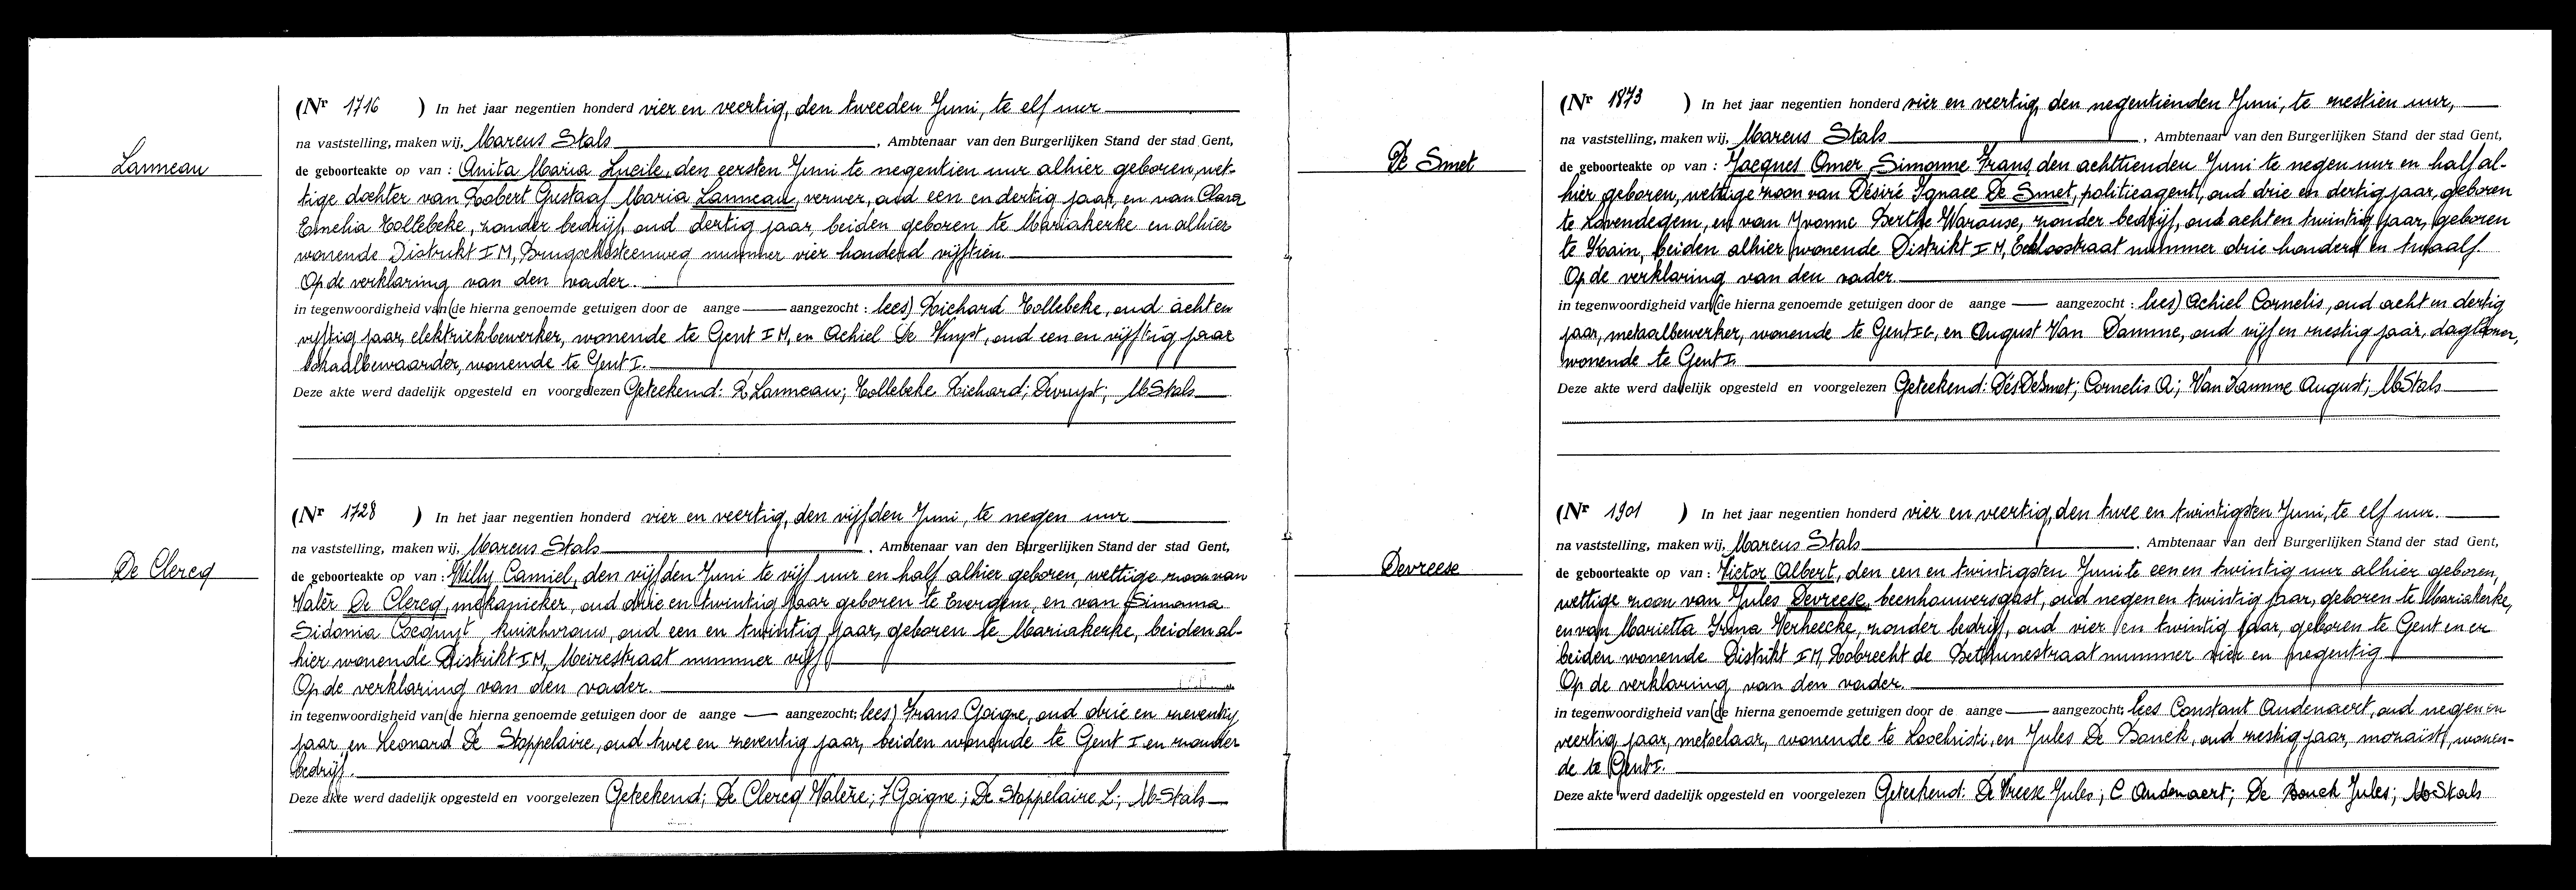 Lanneau
(Nr 1716 ) In het jaar negentien honderd vier en veertig, den tweeden Juni, te elf uur
na vaststelling, maken wij, Marcus Stals, Ambtenaar van den Burgerlijken Stand der stad Gent,
de geboorteakte op van : Anita Maria Lucile, den eersten Juni te negentien uur alhier geboren, wet-
tige dochter van Robert Gustaaf Maria Lanneau, verwer, oud een en dertig jaar, en van Clara
Emelia Tollebeke, zonder bedrijf, oud dertig jaar, beiden geboren te Mariakerke en alhier
wonende Distrikt I M, Brugschesteenweg nummer vier honderd vijftien.
Op de verklaring van den vader.
in tegenwoordigheid van (de hierna genoemde getuigen door de aange — aangezocht : lees) Richard Tollebeke, oud acht en
vijftig jaar, elektriekbewerker, wonende te Gent I M, en Achiel De Vuyst, oud een en vijftig jaar
lokaalbewaarder, wonende te Gent I.
Deze akte werd dadelijk opgesteld en voorgelezen Geteekend: R Lanneau; Tollebeke Richard; Devuyst; M Stals
De Clercq
(Nr 1728 ) In het jaar negentien honderd vier en veertig, den vijfden Juni, te negen uur
na vaststelling, maken wij, Marcus Stals, Ambtenaar van den Burgerlijken Stand der stad Gent,
de geboorteakte op van : Willy Camiel, den vijfden Juni te vijf uur en half alhier geboren, wettige zoon van
Valèr De Clercq, mekanieker, oud drie en twintig jaar geboren te Evergem, en van Simonna
Sidonia Coequyt, kuischvrouw, oud een en twintig jaar, geboren te Mariakerke, beiden al-
hier wonende Distrikt I M, Meirestraat nummer vijf
Op de verklaring van den vader.
in tegenwoordigheid van (de hierna genoemde getuigen door de aange — aangezocht; lees) Frans Goigne, oud drie en zeventig
jaar, en Leonard De Stoppelaire, oud twee en zeventig jaar, beiden wonende te Gent I en zonder
bedrijf.
Deze akte werd dadelijk opgesteld en voorgelezen Geteekend; De Clercq Valère; F Goigne; De Stoppelaire L; M Stals
De Smet
(Nr 1873 ) In het jaar negentien honderd vier en veertig, den negentienden Juni, te zestien uur,
na vaststelling, maken wij, Marcus Stals, Ambtenaar van den Burgerlijken Stand der stad Gent,
de geboorteakte op van : Jacques Omer Simonne Frans, den achttienden Juni te negen uur en half al-
hier geboren, wettige zoon van Désiré Ignace De Smet, politieagent, oud drie en dertig jaar, geboren
te Lovendegem, en van Yvonne Berthe Warause, zonder bedrijf, oud acht en twintig jaar, geboren
te Kain, beiden alhier wonende Distrikt I M, Eeklostraat nummer drie honderd en twaalf.
Op de verklaring van den vader.
in tegenwoordigheid van (de hierna genoemde getuigen door de aange — aangezocht : lees) Achiel Cornelis, oud acht en dertig
jaar, metaalbewerker, wonende te Gent I G, en August Van Damme, oud vijf en zestig jaar, daglooner,
wonende te Gent I.
Deze akte werd dadelijk opgesteld en voorgelezen Geteekend: Dés DeSmet; Cornelis A; Van Damme August; M Stals
Devreese
(Nr 1901 ) In het jaar negentien honderd vier en veertig, den twee en twintigsten Juni, te elf uur.
na vaststelling, maken wij, Marcus Stals, Ambtenaar van den Burgerlijken Stand der stad Gent,
de geboorteakte op van : Victor Albert, den een en twintigsten Juni te een en twintig uur alhier geboren,
wettige zoon van Jules Devreese, beenhouwersgast, oud negen en twintig jaar, geboren te Mariakerke,
en van Marietta Irma Verheecke, zonder bedrijf, oud vier en twintig jaar, geboren te Gent en er
beiden wonende Distrikt I M, Robrecht de Bethunestraat nummer vier en negentig
Op de verklaring van den vader.
in tegenwoordigheid van (de hierna genoemde getuigen door de aange — aangezocht; lees Constant Audenaert, oud negen en
veertig jaar, metselaar, wonende te Loochristi, en Jules De Bouck, oud zestig jaar, mozaïst, wonen-
de te Gent I.
Deze akte werd dadelijk opgesteld en voorgelezen Geteekend: De Vreese Jules; C Audenaert; De Bouck Jules; M Stals